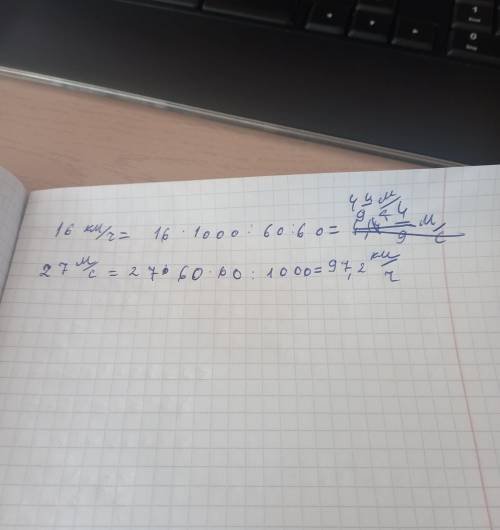 16 км/ч = 16 · 1000 : 60 : 60 = 4 4/9 м/с
27 м/с = 27 · 60 · 60 : 1000 = 97,2 км/ч